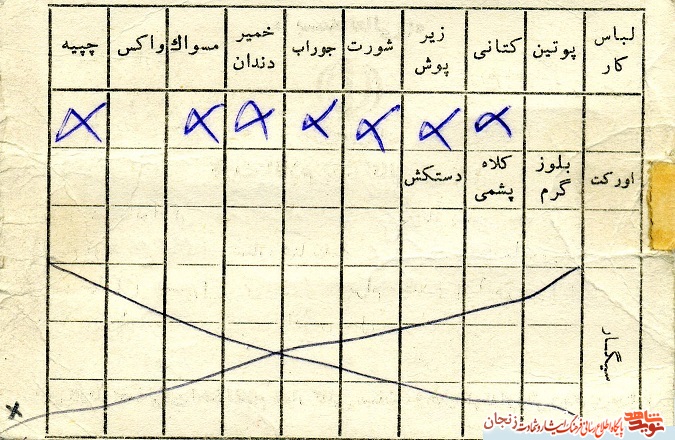 لباس کار پوتین کتانی زیر پوش شورت جوراب خمیر دندان مسواك واکس چپیه
اورکت بلوز گرم کلاه پشمی دستکش
سیگار
نوید شاهد پایگاه اطلاع رسانی فرهنگ ایثار و شهادت زنجان